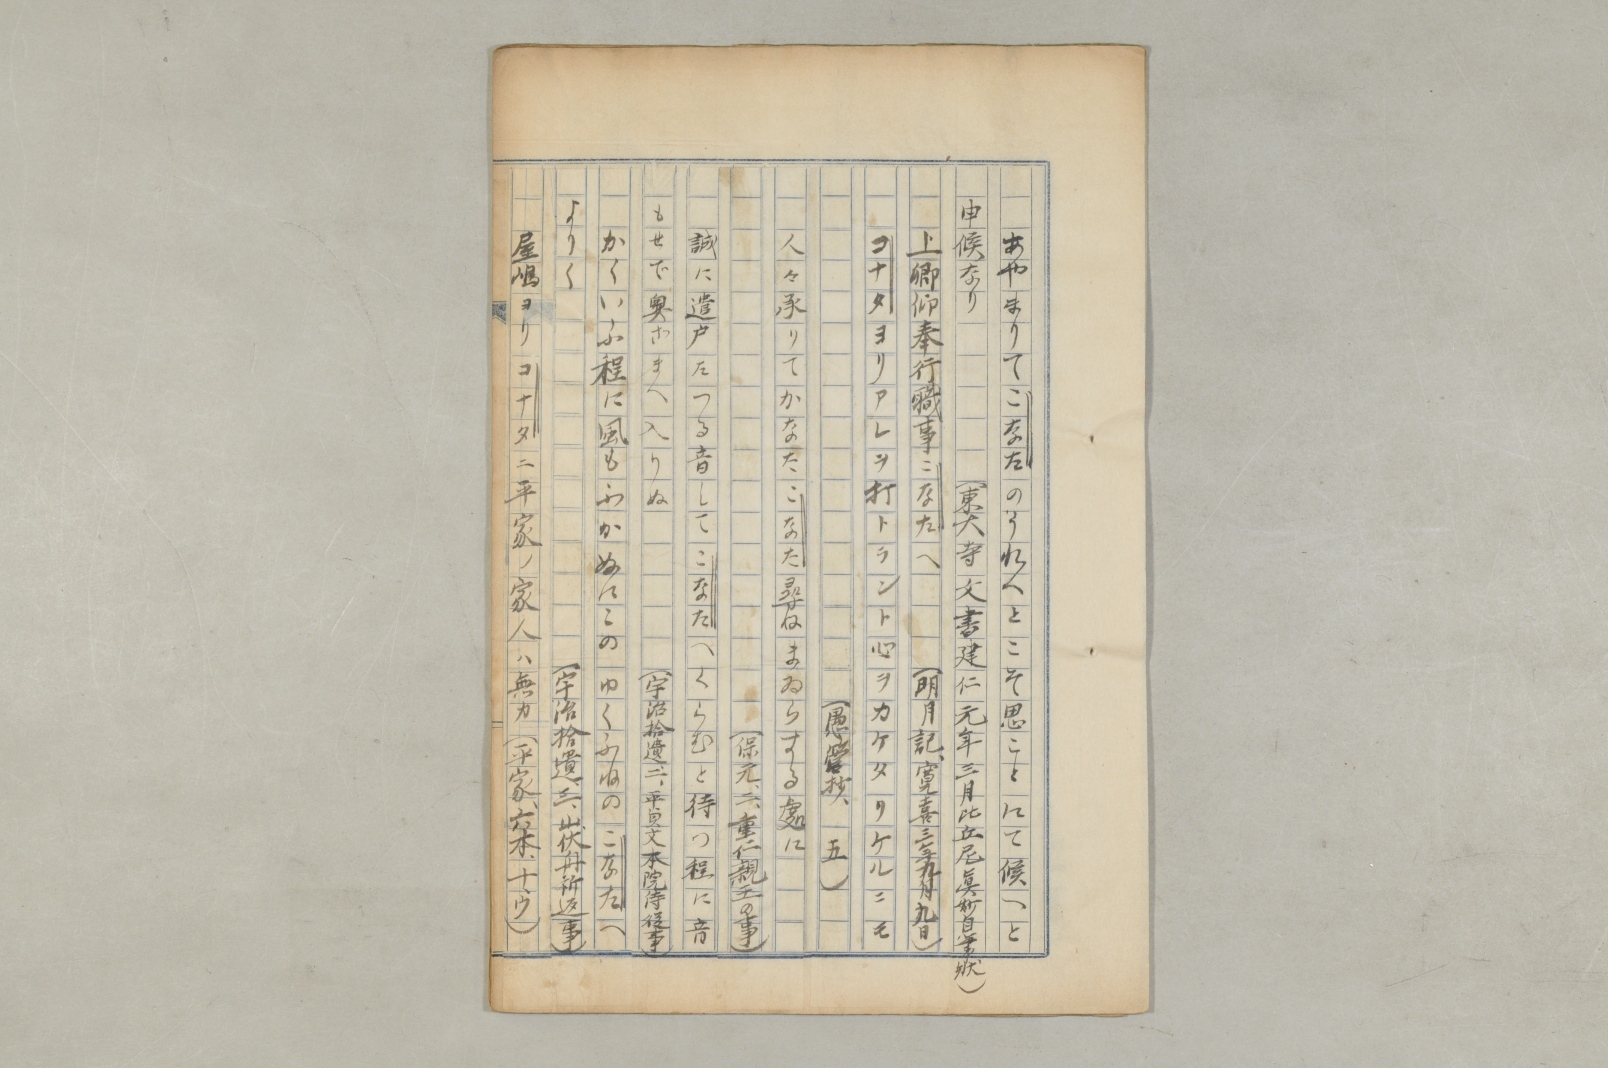 あやまりてこなたのうれへとこそ思ことにて候へと
申候なり　(東大寺文書建仁元年三月比丘尼眞妙自筆状)
上卿仰奉行職事こなたへ　(明月記、寛喜三年九月九日)
コナタヨリアレヲ打トラント心ヲカケタリケルニモ
(愚管抄、五)
人々承りてかなたこなた尋ねまゐらする處に
(保元、二、重仁親王の事)
誠に遣戸たつる音してこなたへくらむと待つ程に音
もせで奥ざまへ入りぬ　(宇治拾遺二、平貞文本院侍従事)
かくいふ程に風もふかぬにこのゆくふねのこなたへ
よりく　(宇治拾遺、三、山伏舟祈返事)
屋嶋ヨリコナタニ平家ノ家人ハ無カ(平家、六本、十ウ)